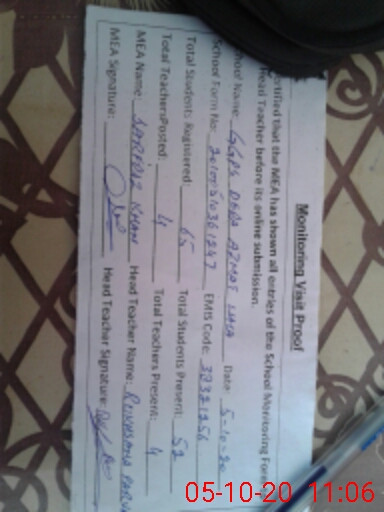 Monitoring Visit Proof
ertified that the MEA has shown all entries of the School Monitoring Form
Head Teacher before its online submission.
hool Name: GGPS DERA AZMAT Date: 5-10-20
School Form No: EMIS Code: 38321256
Total Students Registered: 65 Total Students Present: 52
Total TeachersPosted: 4 Total Teachers Present: 4
MEA Name: SARFRAZ KHAN Head Teacher Name: RUKHSANA PARV
MEA Signature: Head Teacher Signature:
05-10-20 11:06